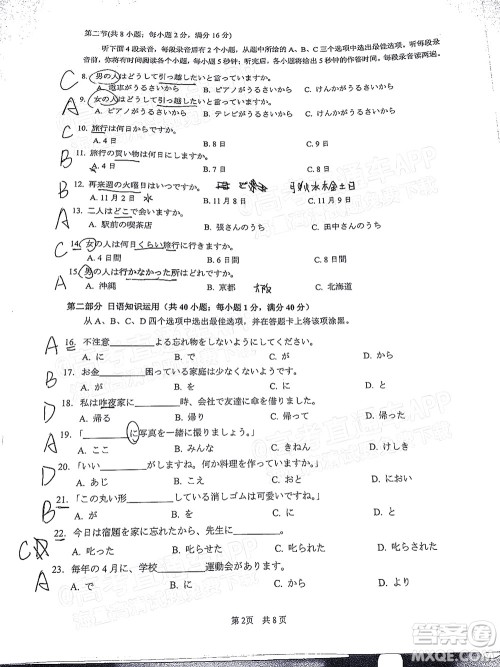 第二节(共 8 小题；每小题 2 分，满分 16 分)
听下面 4 段录音，每段录音后有 2 个小题，从题中所给的 A、B、C 三个选项中选出最佳选项。听每段录
音前，你将有时间阅读各个小题，每小题 5 秒钟；听完后，各小题将给出 5 秒钟的作答时间。每段录音读两遍。
C 8. 男の人はどうして引っ越したいと言っていますか。
A. 電車がうるさいから B. ピアノがうるさいから C. けんかがうるさいから
A 9. 女の人はどうして引っ越したいと言っていますか。
A. ピアノがうるさいから B. テレビがうるさいから C. けんかがうるさいから
B 10. 旅行は何日からですか。
A. 4日 B. 8日 C. 9日
B 11. 旅行の買い物は何日にしますか。
A. 4日 B. 8日 C. 9日
B 12. 再来週の火曜日は何日ですか。
A. 11月2日 B. 11月8日 C. 11月9日
A 13. 二人はどこで会いますか。
A. 駅前の喫茶店 B. 張さんのうち C. 田中さんのうち
C 14. 女の人は何日くらい旅行に行きますか。
A. 2日 B. 3日 C. 4日
A 15. 男の人は行かなかった所はどれですか。
A. 沖縄 B. 京都 大阪 C. 北海道
第二部分 日语知识运用（共 40 小题；每小题 1 分，满分 40 分）
从 A、B、C、D 四个选项中选出最佳选项，并在答题卡上将该项涂黑。
A 16. 不注意________よる忘れ物をしないでください。
A. に B. で C. を D. から
B 17. お金________困っている家庭は少なくないです。
A. が B. に C. を D. で
D 18. 私は昨夜家に________時、会社で友達に傘を借りました。
A. 帰る B. 帰り C. 帰って D. 帰った
A 19. 「________に写真を一緒に撮りましょう。」
A. きねん B. みんな C. きねん D. けしき
D 20. 「いい________がしますね。何か料理を作っていますか。」
A. あじ B. こえ C. おと D. におい
B 21. 「この丸い形________している消しゴムは可愛いですね。」
A. が B. を C. に D. で
C 22. 今日は宿題を家に忘れたから、先生に________。
A. 叱った B. 叱らせた C. 叱られた D. 叱られました
A 23. 毎年の 4 月に、学校________運動会があります。
A. で B. に C. は D. より
第 2页 共 8 页
答案圈
MXQE.COM